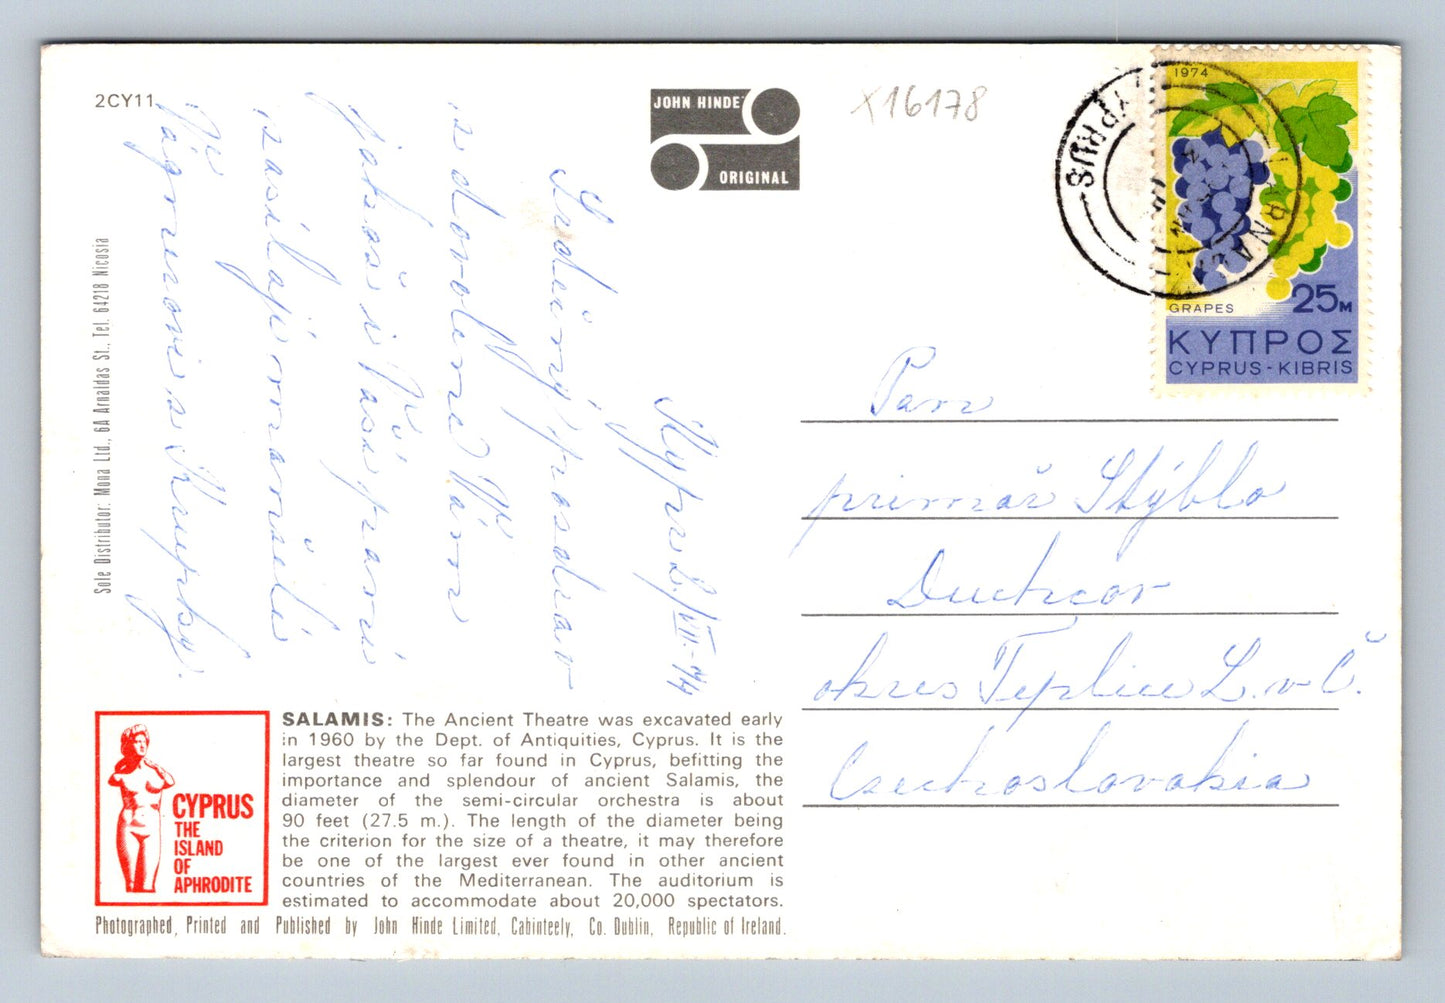 2CY11
JOHN HINDE
ORIGINAL
X16178
CYPRUS
LARNACA
1974
GRAPES
25M
ΚΥΠΡΟΣ
CYPRUS-KIBRIS
Kypr 2./VIII.-74
Srdečný pozdrav
z dovolené Vám
jakož i Vaší paní
zasílají manželé
Vágnerovi z Krupky.
Pan
primář Stýblo
Duchcov
okres Teplice L. v Č.
Czechoslovakia
Sole Distributor: Mona Ltd., 6A Arnaldas St., Tel. 64218 Nicosia
CYPRUS
THE
ISLAND
OF
APHRODITE
SALAMIS: The Ancient Theatre was excavated early
in 1960 by the Dept. of Antiquities, Cyprus. It is the
largest theatre so far found in Cyprus, befitting the
importance and splendour of ancient Salamis, the
diameter of the semi-circular orchestra is about
90 feet (27.5 m.). The length of the diameter being
the criterion for the size of a theatre, it may therefore
be one of the largest ever found in other ancient
countries of the Mediterranean. The auditorium is
estimated to accommodate about 20,000 spectators.
Photographed, Printed and Published by John Hinde Limited, Cabinteely, Co. Dublin, Republic of Ireland.